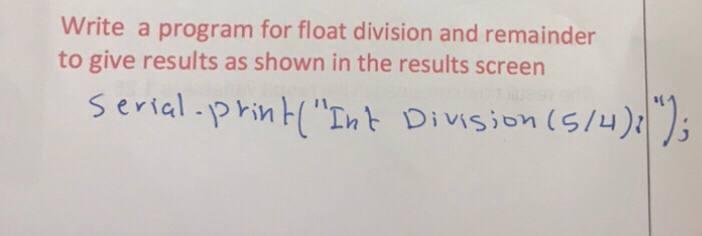 Write a program for float division and remainder
to give results as shown in the results screen
Serial.print("Int Division (5/4): ");